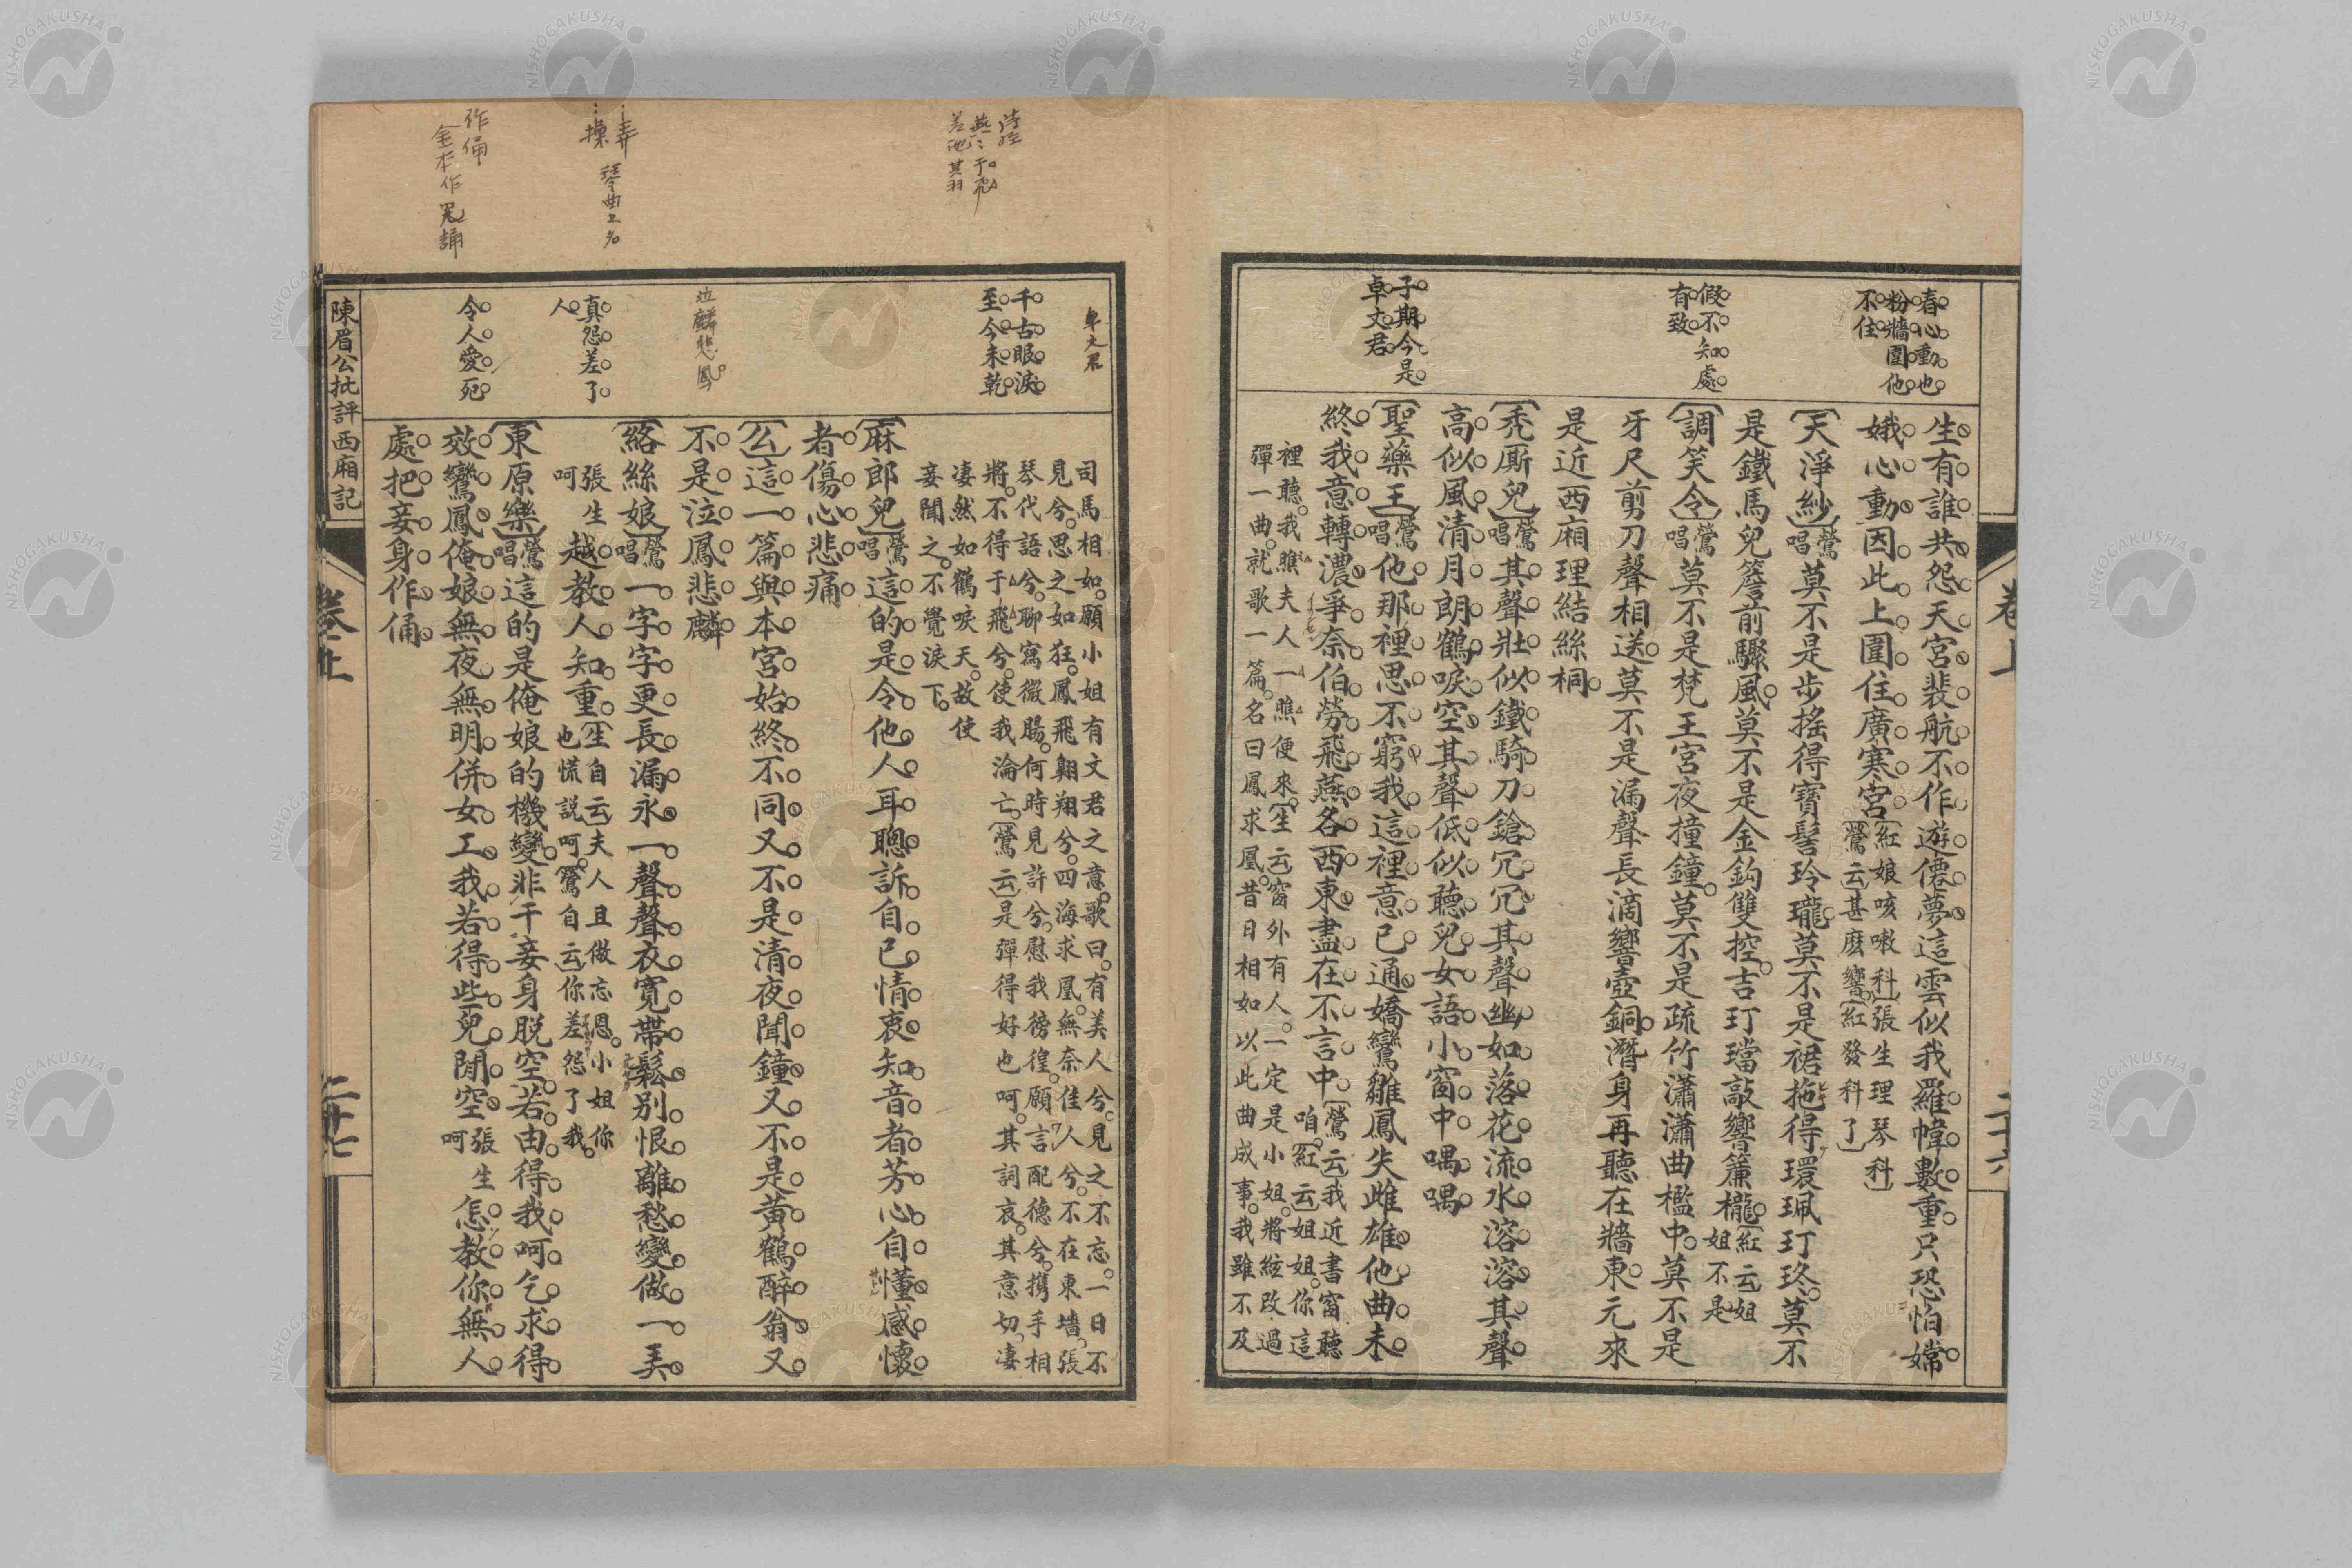 春心動也
粉牆圍他
不住
假不知處
有致
子期今是
卓文君
生有誰共怨天宮裴航不作遊僊夢這雲似我羅幃數重只恐怕嫦
娥心動因此上圍住廣寒宮〔紅娘咳嗽科〕張生理琴科〕
〔鶯云〕甚麽響〔紅發科了〕
〔天淨紗〕鶯唱莫不是步搖得寶髻玲瓏莫不是裙拖得環珮玎珍莫不
是鐵馬兒簷前驟風莫不是金鈎雙控吉玎璫敲響簾櫳〔紅云〕姐
姐不是
〔調笑令〕鶯唱莫不是梵王宮夜撞鐘莫不是疏竹瀟瀟曲檻中莫不是
牙尺剪刀聲相送莫不是漏聲長滴響壺銅潛身再聽在牆東元來
是近西廂理結絲桐
〔禿厮兒〕鶯唱其聲壯似鐵騎刀鎗冗冗其聲幽如落花流水溶溶其聲
高似風清月朗鶴唳空其聲低似聽兒女語小窗中喁喁
〔聖藥王〕鶯唱他那裡思不窮我這裡意已通嬌鸞雛鳳失雌雄他曲未
終我意轉濃爭奈伯勞飛燕各西東盡在不言中〔鶯云〕我近書窗聽
咱〔紅云〕姐姐你這
裡聽我瞧夫人一瞧便來〔生云〕窗外有人一定是小姐將絃改過
彈一曲就歌一篇名曰鳳求凰昔日相如以此曲成事我雖不及
卷上
二十六
詩經
燕燕于飛
差池其羽
弄
操
琴曲之名
作俑
金本作冤誦
卓文君
千古眼淚
至今未乾
泣麟悲鳳
真怨差了
人
令人愛死
司馬相如願小姐有文君之意歌曰有美人兮見之不忘一日不
見兮思之如狂鳳飛翺翔兮四海求凰無奈佳人兮不在東墻張
琴代語兮聊寫微腸何時見許兮慰我徬徨願言配德兮携手相
將不得于飛兮使我淪亡〔鶯云〕是彈得好也呵其詞哀其意切凄
凄然如鶴唳天故使
妾聞之不覺淚下
〔麻郎兒〕鶯唱這的是令他人耳聰訴自己情衷知音者芳心自懂感懷
者傷心悲痛
〔么〕這一篇與本宮始終不同又不是清夜聞鐘又不是黃鶴醉翁又
不是泣鳳悲麟
〔絡絲娘〕鶯唱一字字更長漏永一聲聲衣寬帶鬆别恨離愁變做一弄
張生呵越教人知重〔生自云〕夫人且做忘恩小姐你
也慌説呵〔鶯自云〕你差怨了我
〔東原樂〕鶯唱這的是俺娘的機變非干妾身脱空若由得我呵乞求得
效鸞鳳俺娘無夜無明併女工我若得些兒閒空張生呵怎教你無人
處把妾身作俑
陳眉公批評西廂記
卷上
二十七